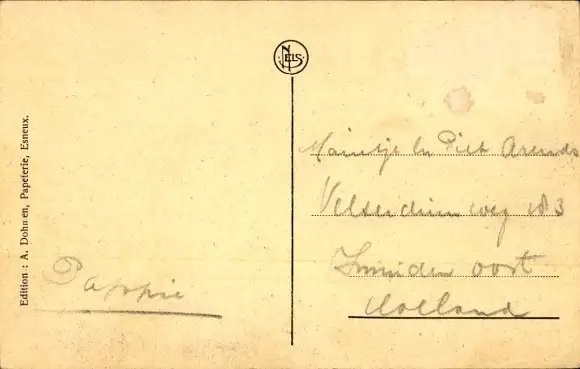 NELS
Edition : A. Dohnen, Papeterie, Esneux.
Pappie
Maintje en Piet Arends
Velserduinweg 183
IJmuiden oost
Holland